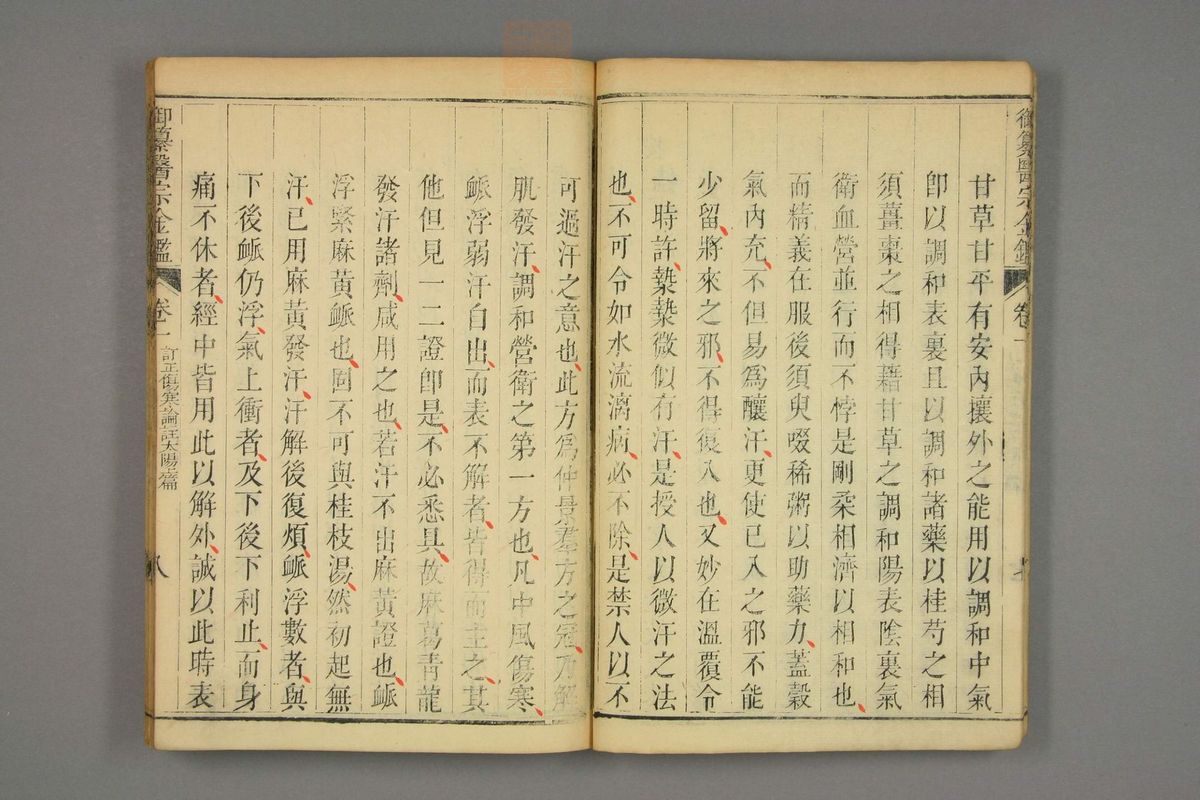 御纂醫宗金鑑
卷一
甘草甘平有安內攘外之能用以調和中氣
卽以調和表裏且以調和諸藥以桂芍之相
須薑棗之相得藉甘草之調和陽表陰裏氣
衛血營並行而不悖是剛柔相濟以相和也
而精義在服後須臾啜稀粥以助藥力蓋穀
氣內充不但易爲釀汗更使已入之邪不能
少留將來之邪不得復入也又妙在溫覆令
一時許漐漐微似有汗是授人以微汗之法
也不可令如水流漓病必不除是禁人以不
可過汗之意也此方爲仲景羣方之冠乃解
肌發汗調和營衛之第一方也凡中風傷寒
衇浮弱汗自出而表不解者皆得而主之其
他但見一二證卽是不必悉具故麻葛靑龍
發汗諸劑咸用之也若汗不出麻黃證也衇
浮緊麻黃衇也固不可與桂枝湯然初起無
汗已用麻黃發汗汗解後復煩衇浮數者與
下後衇仍浮氣上衝者及下後下利止而身
痛不休者經中皆用此以解外誠以此時表
御纂醫宗金鑑
卷一
訂正傷寒論註太陽上篇
八